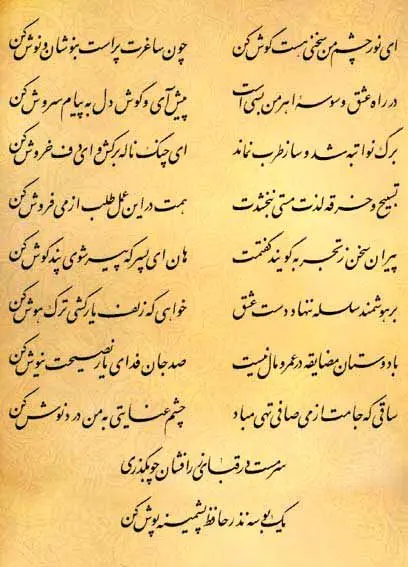 ای نور چشم من سخنی هست گوش کن چون ساغرت پر است بنوشان و نوش کن
در راه عشق وسوسهٔ اهرمن بسی است پیش آی و گوش دل به پیام سروش کن
برگ نوا تبه شد و ساز طرب نماند ای چنگ ناله برکش و ای دف خروش کن
تسبیح و خرقه لذت مستی نبخشدت همت در این عمل طلب از می فروش کن
پیران سخن ز تجربه گویند گفتمت هان ای پسر که پیر شوی پند گوش کن
بر هوشمند سلسله ننهاد دست عشق خواهی که زلف یار کشی ترک هوش کن
با دوستان مضایقه در عمر و مال نیست صد جان فدای یار نصیحت نیوش کن
ساقی که جامت از می صافی تهی مباد چشم عنایتی به من دردنوش کن
سرمست در قبای زرافشان چو بگذری
یک بوسه نذر حافظ پشمینه پوش کن